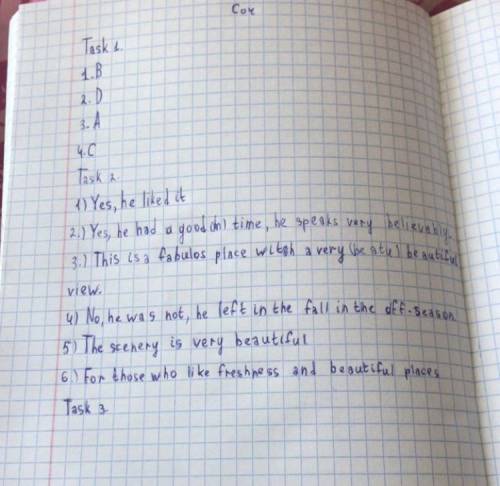 Cor
Task 1.
1. B
2. D
3. A
4. C
Task 2
1) Yes, he liked it
2.) Yes, he had a good(in) time, he speaks very believably.
3.) This is a fabulos place witsh a very (beatu) beautiful
view.
4) No, he was not, he left in the fall in the off-season
5) The scenery is very beautiful
6.) For those who like freshness and beautiful places
Task 3